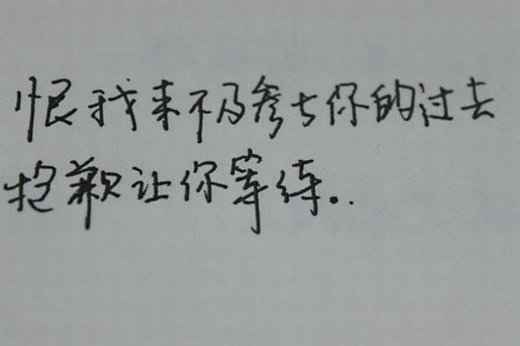 恨我来不及参与你的过去
抱歉让你等待..